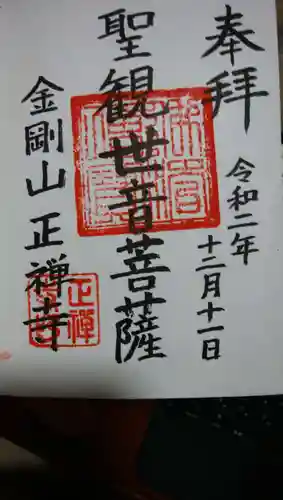 奉拝
令和二年
十二月十一日
聖観世音菩薩
金剛山正禅寺
正禅